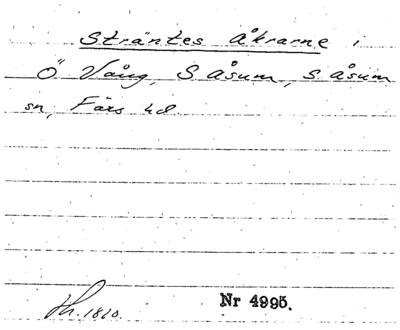 Sträntes åkrarne i
Ö Vång, S. Åsum, S. Åsum
sn, Färs hd.
1820. Nr 4995.